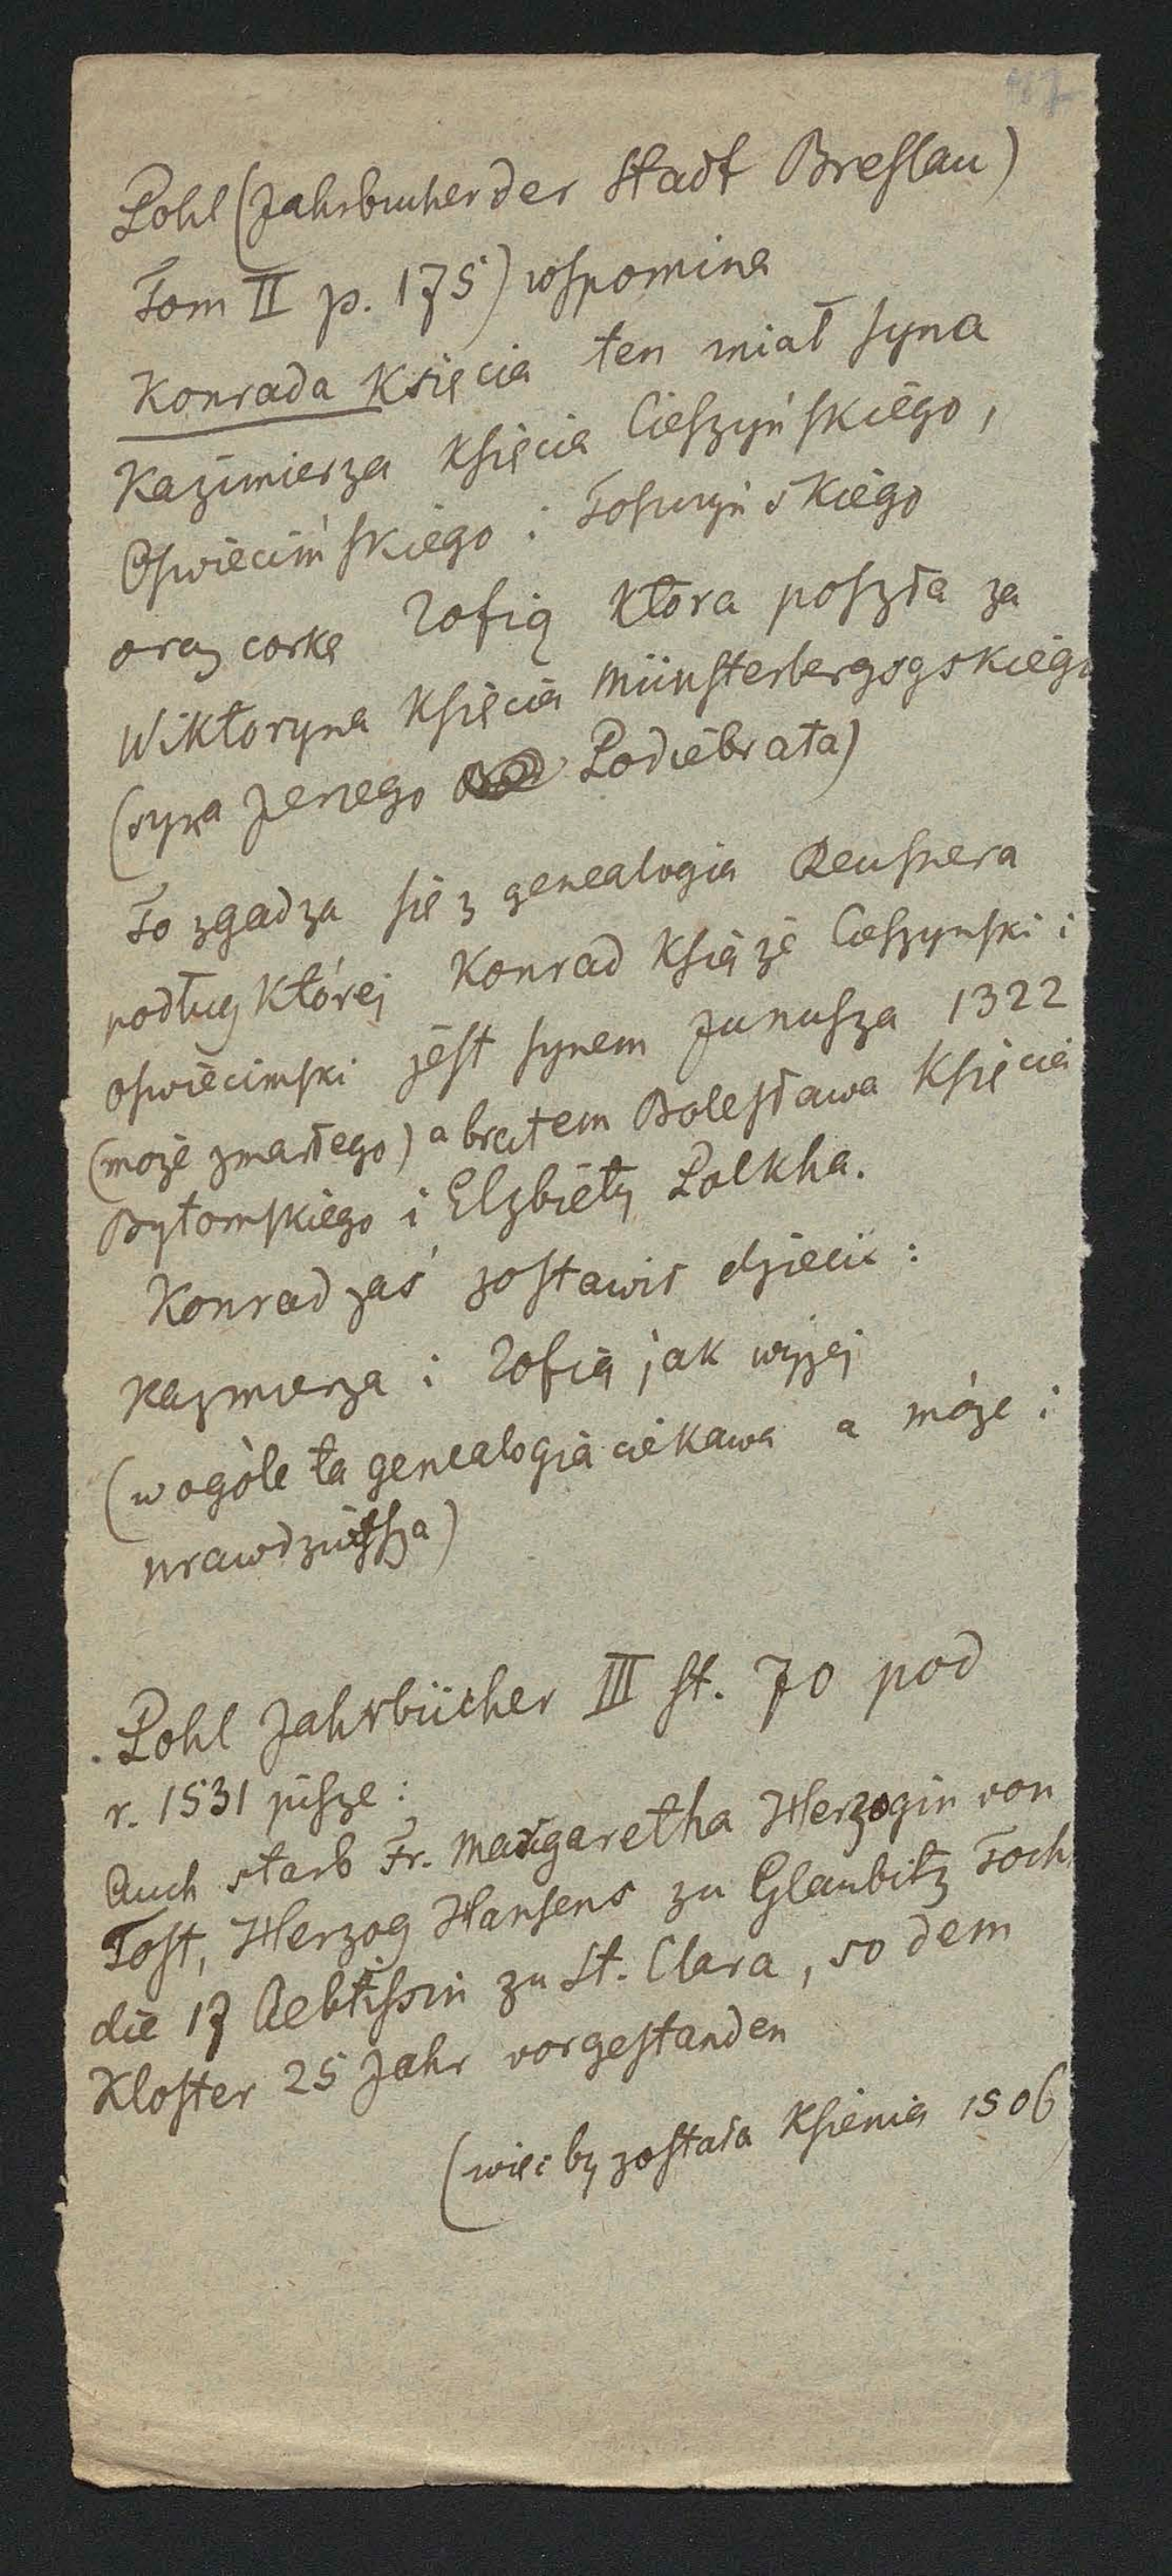 Pohl (Jahrbucher der Stadt Breslau)
Tom II p. 175) wspomina
Konrada Księcia ten miał syna
Kazimierza Księcia Cieszyńskiego,
Oświecimskiego i
oraz corkę Zofią ktora poszła za
Wiktoryna Księcia Münsterbergsgskiego
(syna Jerzego Podiebrata)
To zgadza się z genealogia Reusnera
podług której Konrad Książe Cieszynski i
oswiecimski jest synem Janusza 1322
(może zmarłego) a bratem Bolesława Księcia
Bytomskiego i Elzbiety Polkha.
Konrad zaś zostawił dzieci:
Kazmierza i Zofią jak wyzej
(wogòle ta genealogia ciekawa a może i
prawdziwsza)
Pohl Jahrbücher III st. 70 pod
r. 1531 pisze:
Auch starb Fr. Margaretha Herzogin von
Tost, Herzog Hansens zu Glaubitz Toch
die 17 Aebtissin zu St. Clara, so dem
Kloster 25 Jahr vorgestanden
(więc by została Ksienią 1506